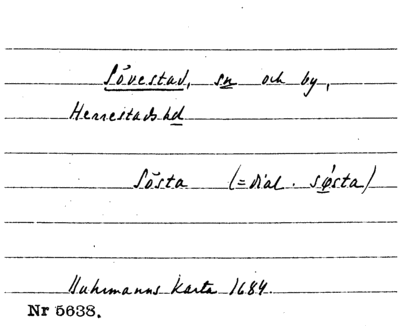 Sövestad, sn och by,
Herrestads hd
Sösta (= dial. sǿsta)
Buhrmanns karta 1684
Nr 5638.